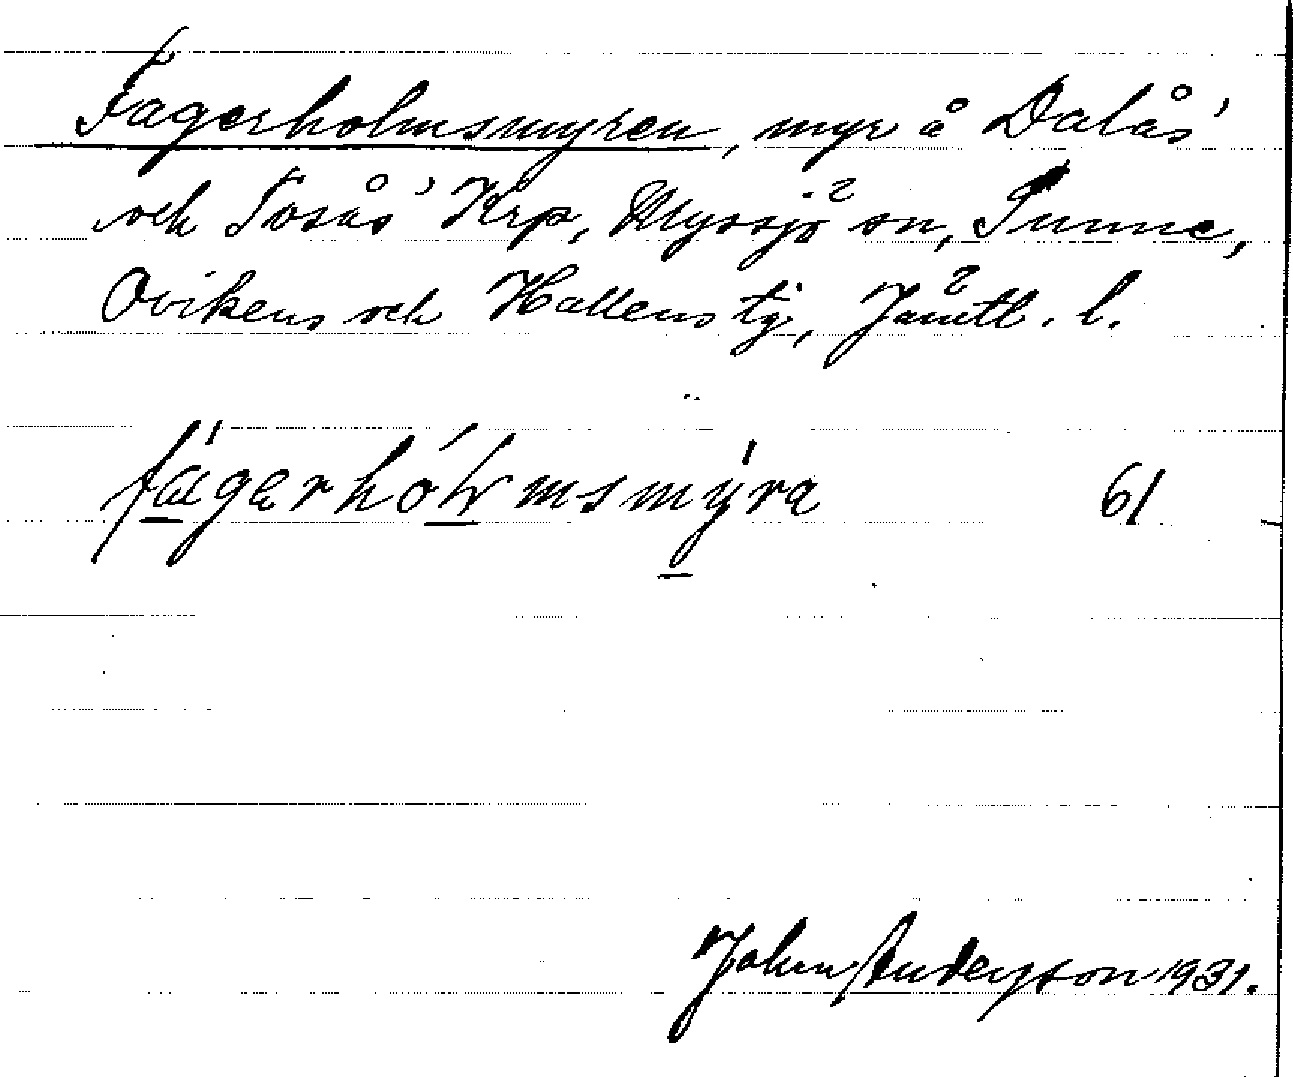 Fagerholmsmyren, myr å Dalås'
och Tosås' Krp, Myssjö sn, Sunne,
Ovikens och Hallens tg, Jämtl. l.
fagerhólmsmyra 61
John Anderson 1931.